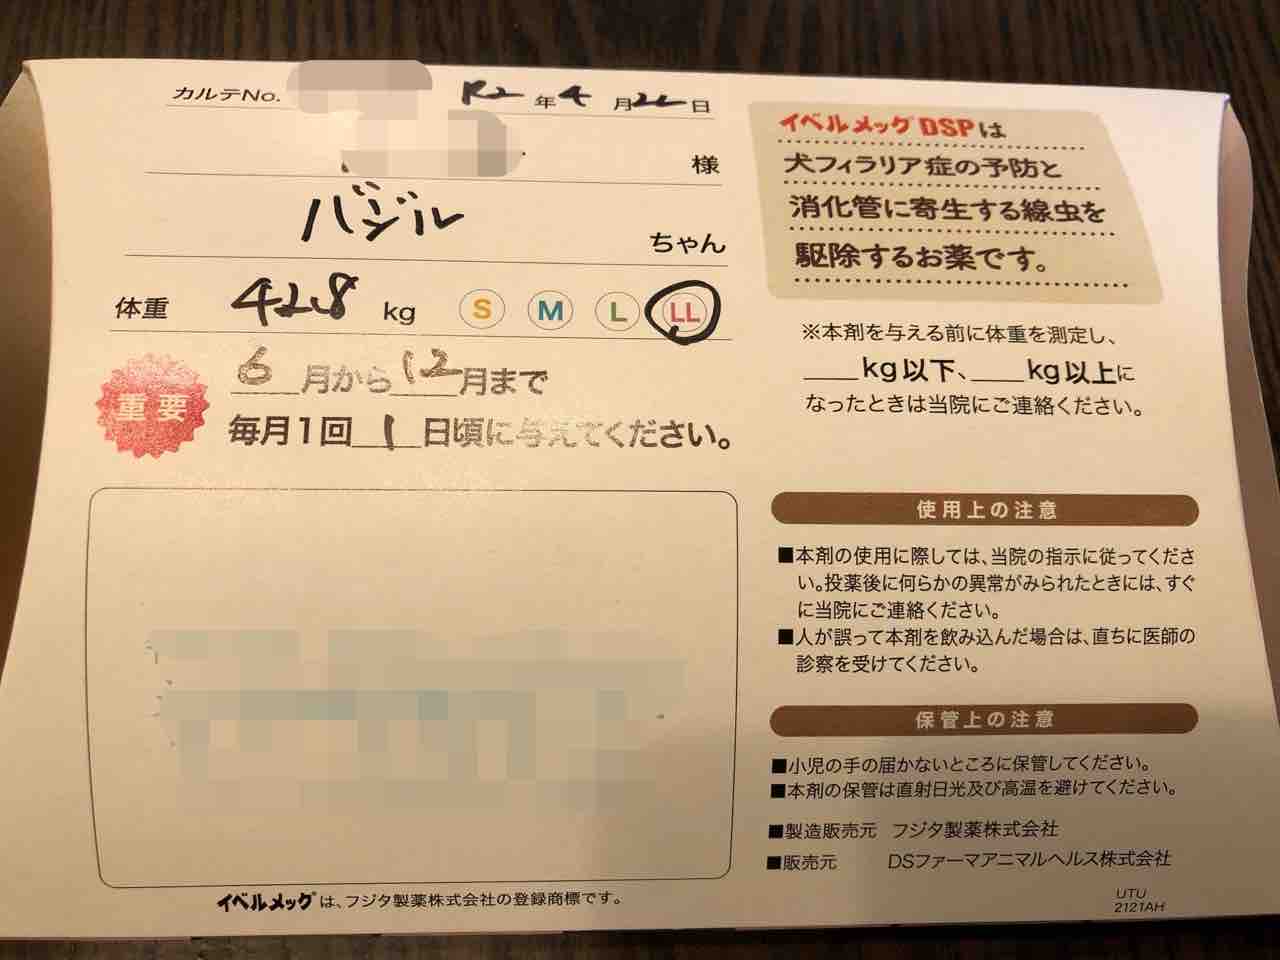 カルテNo.
R2年4月22日
様
バジルちゃん
体重 42.8 kg S M L LL
重要
6月から12月まで
毎月1回1日頃に与えてください。
イベルメックDSPは
犬フィラリア症の予防と
消化管に寄生する線虫を
駆除するお薬です。
※本剤を与える前に体重を測定し、
___kg以下、___kg以上に
なったときは当院にご連絡ください。
使用上の注意
■本剤の使用に際しては、当院の指示に従ってくださ
い。投薬後に何らかの異常がみられたときには、すぐ
に当院にご連絡ください。
■人が誤って本剤を飲み込んだ場合は、直ちに医師の
診察を受けてください。
保管上の注意
■小児の手の届かないところに保管してください。
■本剤の保管は直射日光及び高温を避けてください。
■製造販売元 フジタ製薬株式会社
■販売元 DSファーマアニマルヘルス株式会社
イベルメックは、フジタ製薬株式会社の登録商標です。
UTU
2121AH